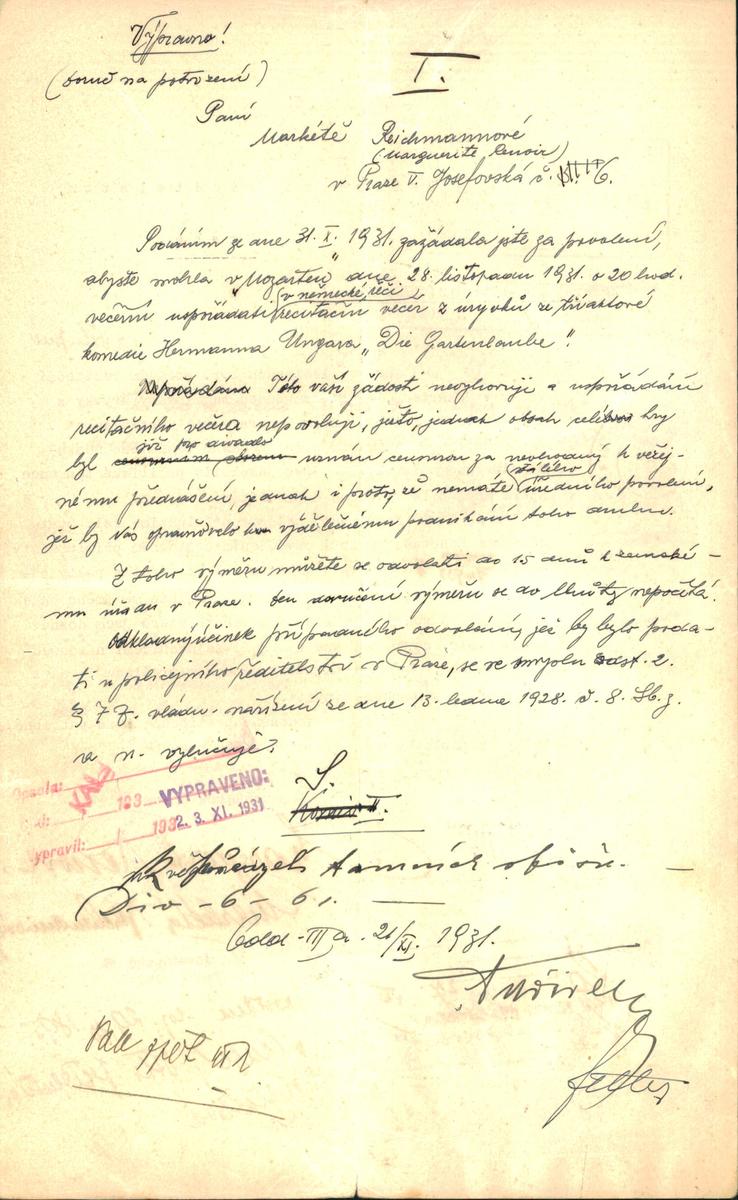 Výpravno!
(doruč na potvrzení)
I.
Paní
Markétě Reichmannové
(Marguerite Renoir)
v Praze V. Josefovská č. 6.
Podáním ze dne 31. X. 1931. zažádala jste za povolení,
abyste mohla v "Mozarteu" dne 28. listopadu 1931. o 20 hod.
v německé řeči
večerní uspořádati recitační večer z úryvků ze tříaktové
komedie Hermanna Ungara „Die Gartenlaube".
Této vaší žádosti nevyhovuji a uspořádání
recitačního večera nepovoluji, ježto jednak obsah celé hry
již pro divadlo
byl uznán censurou za nevhodný k veřej-
stálého
nému přednášení, jednak i proto, že nemáte úředního povolení,
jež by vás opravňovalo ku výdělečnému podnikání toho druhu.
Z tohoto výměru můžete se odvolati do 15 dnů k zemské-
mu úřadu v Praze. Den doručení výměru se do lhůty nepočítá.
Odkladný účinek případného odvolání, jež by bylo podá-
ti u policejního ředitelství v Praze, se ve smyslu odst. 2.
§ 77. vládn. nařízení ze dne 13. ledna 1928. č. 8. Sb. z.
a n. vylučuje.
Opsala:
193
VYPRAVENO:
vypravil: 193
2. 3. XI. 1931
Div - 6 - 61.
Odd - III a. 21/XI. 1931.